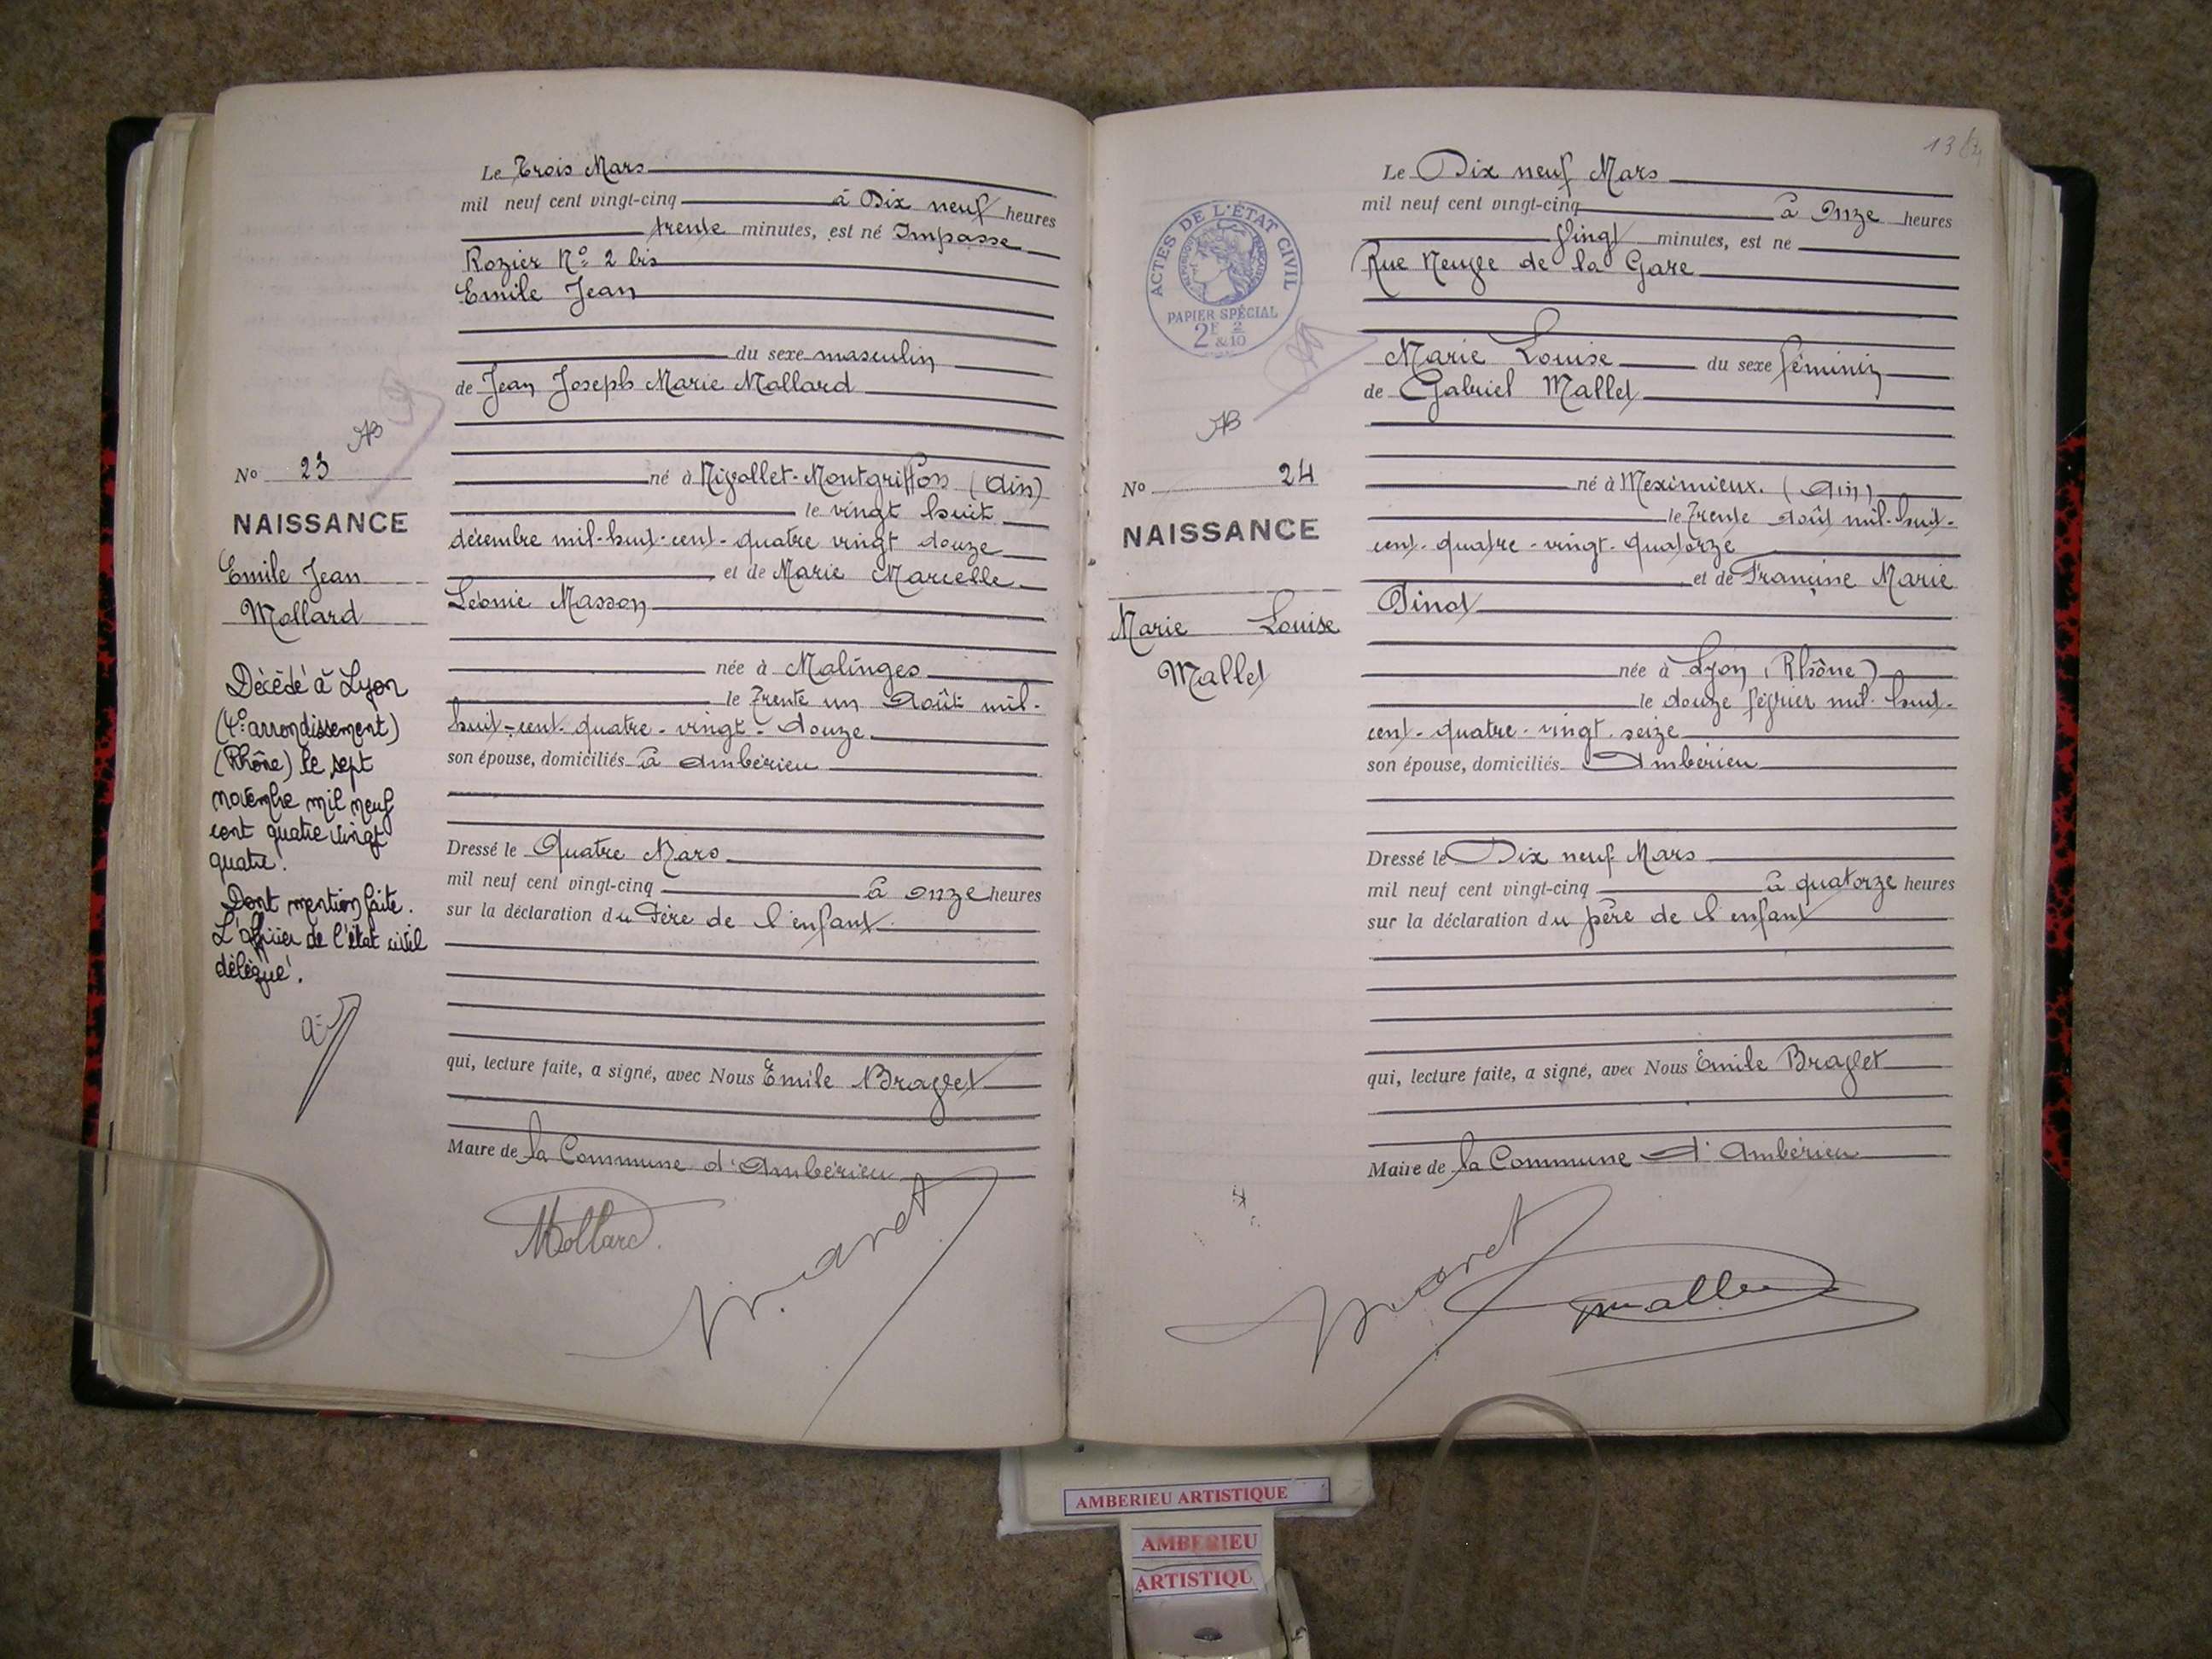 Le Trois Mars
mil neuf cent vingt-cinq à Dix neuf heures
trente minutes, est né Impasse
Rozier No 2 bis
Emile Jean
du sexe masculin
de Jean Joseph Marie Mollard
AB
No 23
NAISSANCE
Emile Jean
Mollard
né à Nivollet-Montgriffon (Ain)
le vingt huit
décembre mil-huit-cent-quatre vingt douze
et de Marie Marcelle
Léonie Masson
née à Malinges
le Trente un Août mil-
huit-cent-quatre-vingt-douze
son épouse, domiciliés à Ambérieu
Décédé à Lyon
(4e arrondissement)
(Rhône) le sept
novembre mil neuf
cent quatre vingt
quatre.
Dont mention faite.
L'officier de l'état civil
délégué.
Dressé le Quatre Mars
mil neuf cent vingt-cinq à onze heures
sur la déclaration du Père de l'enfant
qui, lecture faite, a signé, avec Nous Emile Bravet
Maire de la Commune d'Ambérieu
Mollard
13
ACTES DE L'ÉTAT CIVIL
PAPIER SPÉCIAL
2F & 2/10
Le Dix neuf Mars
mil neuf cent vingt-cinq à Onze heures
Vingt minutes, est né
Rue Neuve de la Gare
Marie Louise du sexe féminin
de Gabriel Mallet
AB
No 24
NAISSANCE
Marie Louise
Mallet
né à Meximieux. (Ain)
le Trente Août mil-huit-
cent-quatre-vingt-quatorze
et de Francine Marie
Pinot
née à Lyon (Rhône)
le douze février mil-huit-
cent-quatre-vingt-seize
son épouse, domiciliés Ambérieu
Dressé le Dix neuf Mars
mil neuf cent vingt-cinq à quatorze heures
sur la déclaration du père de l'enfant
qui, lecture faite, a signé, avec Nous Emile Bravet
Maire de la Commune d'Ambérieu
Mallet
AMBERIEU ARTISTIQUE
AMBERIEU
ARTISTIQU